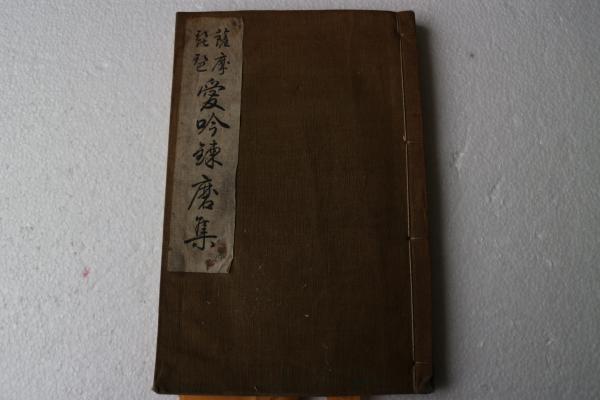 薩摩
琵琶
愛吟錬磨集